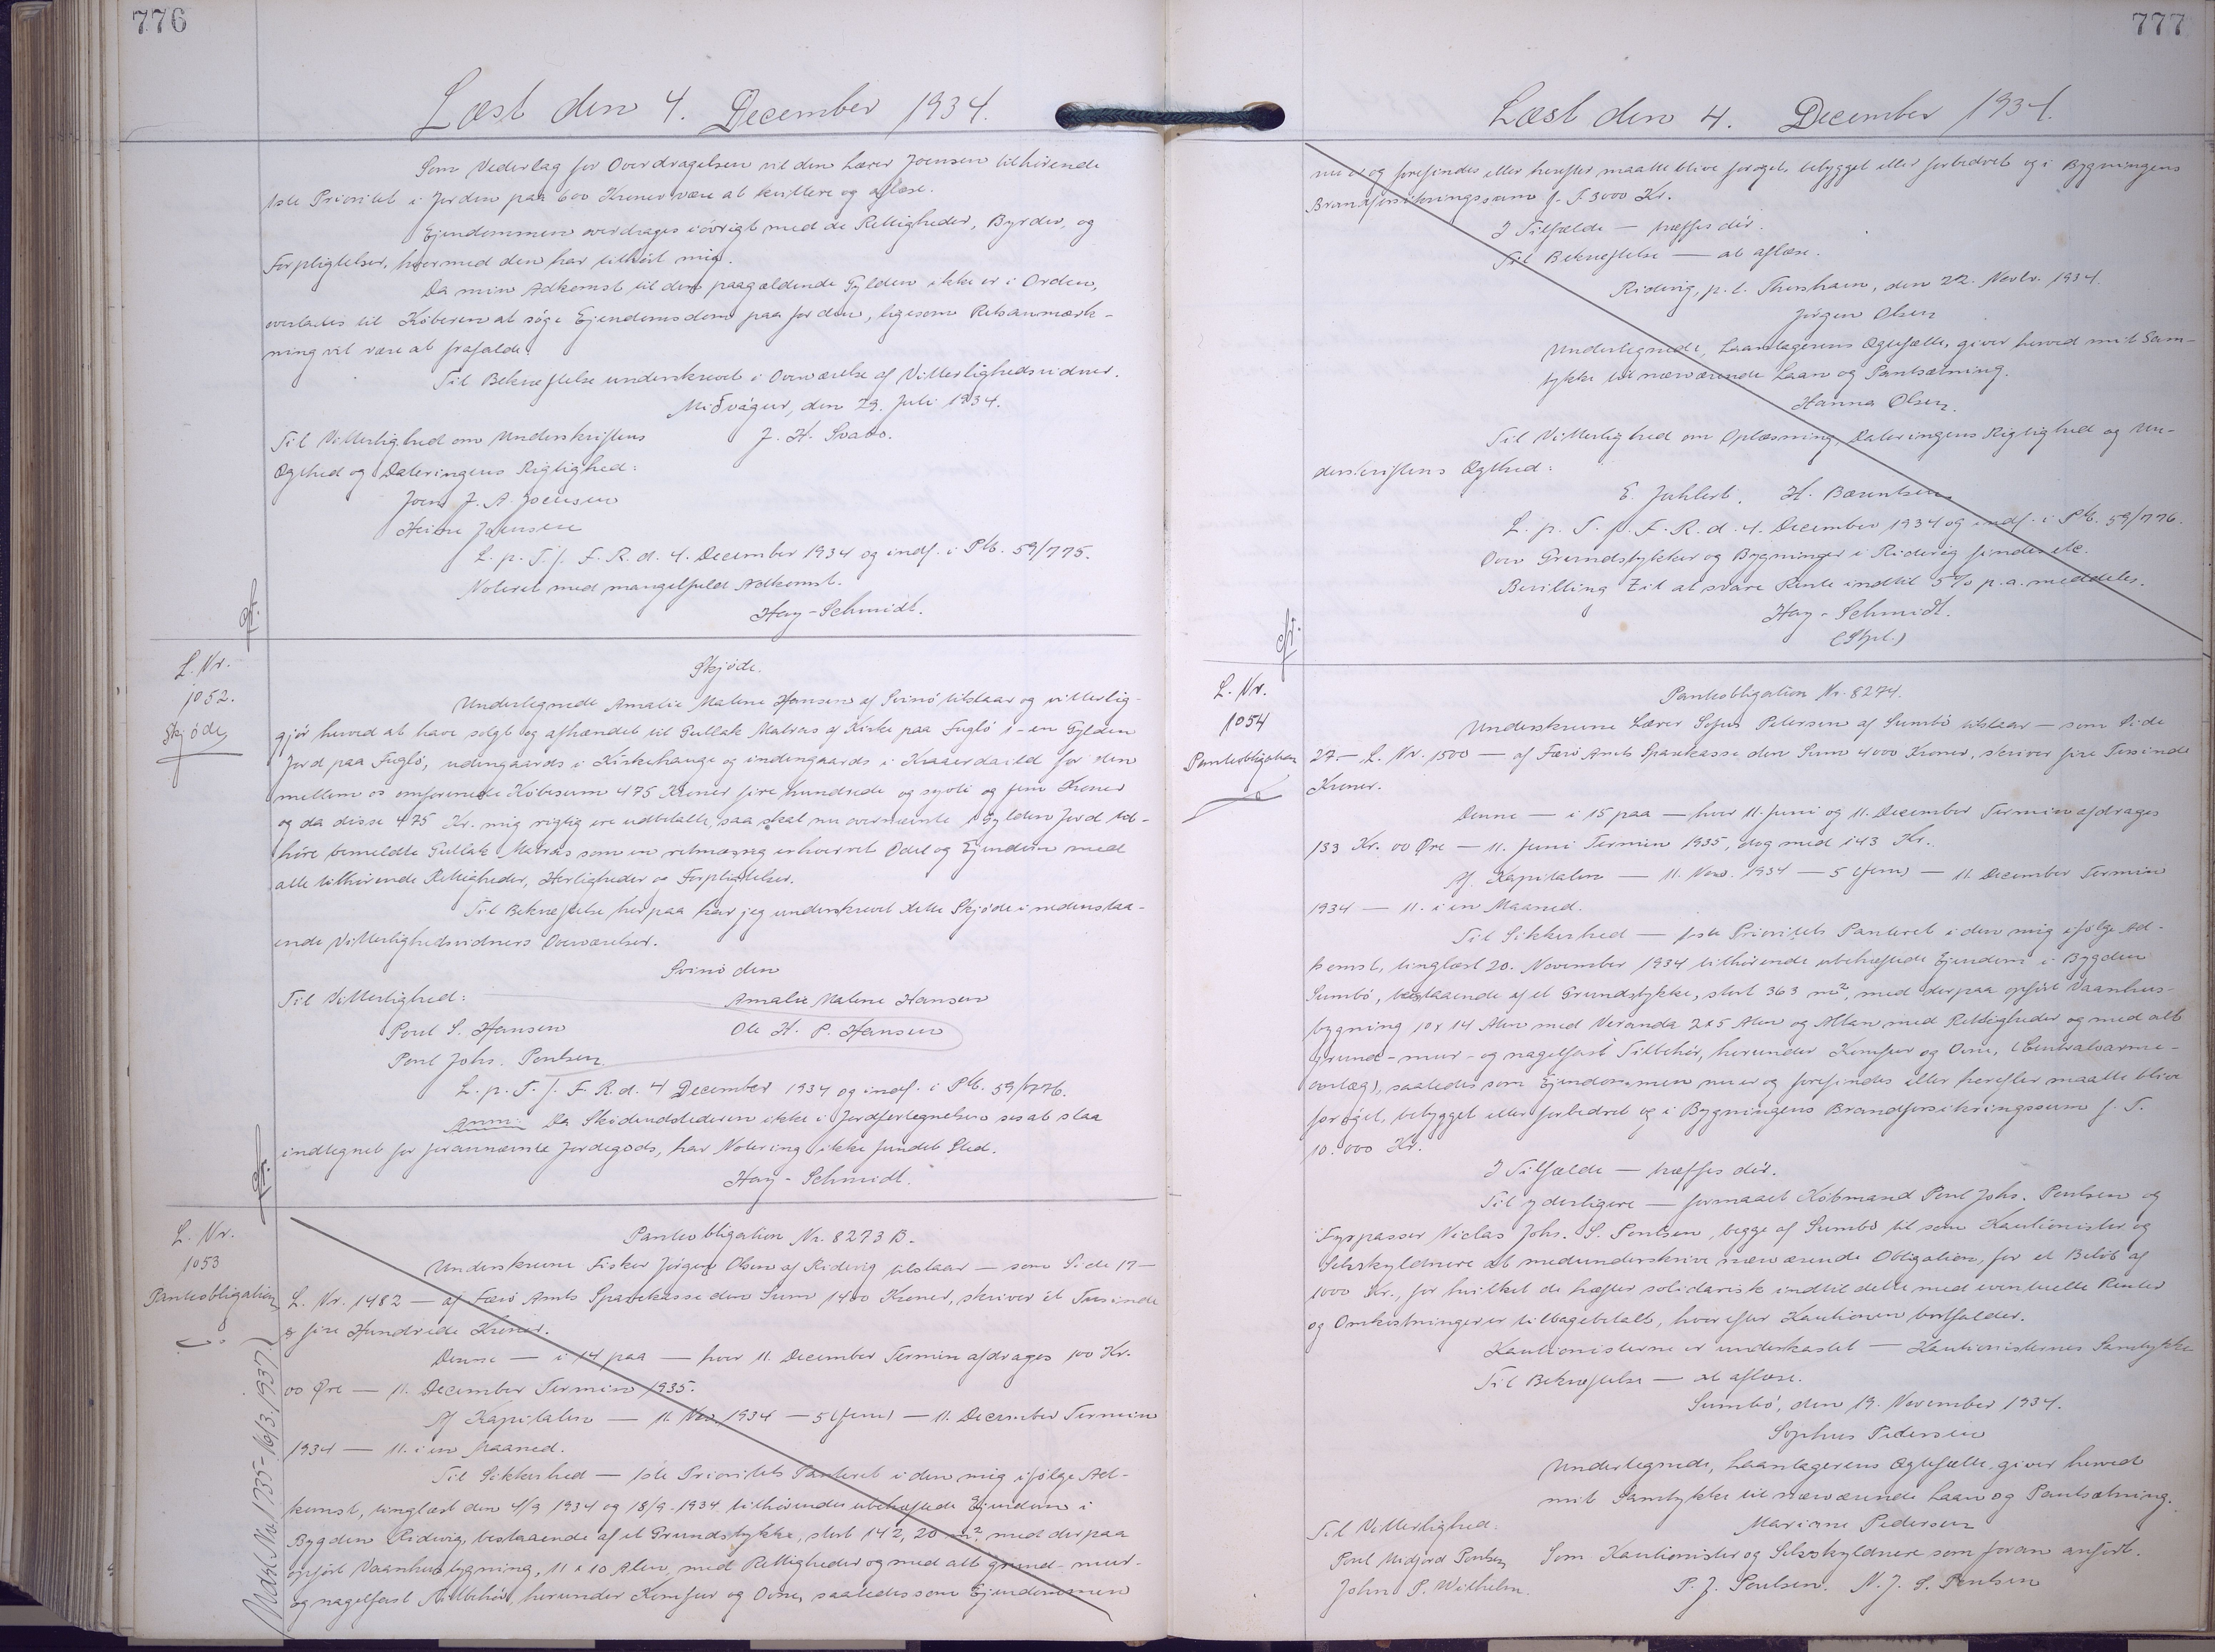 776
Læst den 4. December 1934.
Som Vederlag for Overdragelsen vil den Lærer Joensen tilhørende
1ste Prioritet i Jorden paa 600 Kroner være at kvittere og aflæse.
Ejendommen overdrages iøvrigt med de Rettigheder, Byrder, og
Forpligtelser, hvormed den har tilhørt mig.
Da min Adkomst til den paagældende Gylden ikke er i Orden,
overlades til Køberen at søge Ejendomsdom paa for den, ligesom Retsanmærk-
ning vil være at frafalde.
Til Bekræftelse underskrevet i Overværelse af Vitterlighedsvidner.
Miðvágur, den 23. Juli 1934.
Til Vitterlighed om Underskriftens J. H. Svabo.
Ægthed og Dateringens Rigtighed:
Joen J. A. Joensen
Heine Joensen
L. p. T. f. F. R. d. 4. December 1934 og indf. i P.B. 59/775.
Noteret med mangelfuld Adkomst.
Hay-Schmidt.
L. Nr.
1052.
Skjøde
Skjøde.
Undertegnede Amalie Malene Hansen af Svinø tilstaar og vitterlig-
gjør herved at have solgt og afhændet til Gullak Matras af Kirke paa Fuglø 1 - en Gylden
Jord paa Fuglø, udengaards i Kirkehauge og indengaards i for den
mellem os omforenede Købesum 475 Kroner fire hundrede og syvti og fem Kroner
og da disse 475 Kr. mig rigtig ere udbetalte, saa skal nu overnævnte 1 Gylden Jord til-
høre bemeldte Gullak Matras som en retmæssig erhvervet Odel og Ejendom med
alle tilhørende Rettigheder, Herligheder og Forpligtelser.
Til Bekræftelse herpaa har jeg underskrevet dette Skjøde i nedenstaa-
ende Vitterlighedsvidners Overværelser.
Svinø den
Til Vitterlighed: Amalie Malene Hansen
Poul S. Hansen Ole H. P. Hansen
Poul Johs. Poulsen.
L. p. T. f. F. R. d. 4 December 1934 og indf. i P.B. 59/776.
Anm: Da Skødeudstederen ikke i Jordfortegnelsen ses at staa
indtegnet for forannævnte Jordegods, har Notering ikke fundet Sted.
Hay-Schmidt.
L. Nr.
1053
Panteobligation
Pantobligation Nr. 8273 B.
Underskrevne Fisker Jørgen Olsen af Ridevig tilstaar — som Side 17 —
L. Nr. 1482 — af Færø Amts Sparekasse den Sum 1400 Kroner, skriver et Tusinde
& fire Hundrede Kroner.
Denne — i 14 paa — hver 11. December Termin afdrages 100 Kr.
00 Øre — 11. December Termin 1935.
Af Kapitalen — 11. Nov. 1934 — 5 (fem) — 11. December Termin
1934 — 11. i en Maaned.
Til Sikkerhed — 1ste Prioritets Panteret i den mig ifølge Ad-
komst, tinglæst den 4/9 1934 og 18/9-1934 tilhørende ubehæftede Ejendom i
Bygden Ridevig, bestaaende af et Grundstykke, stort 142,20 m², med derpaa
opført Vaanhusbygning, 11 x 10 Alen, med Rettigheder og med alt grund- mur-
og nagelfast Tilbehør, herunder Komfur og Ovne, saaledes som Ejendommen
777
Læst den 4. December 1934.
nu er og forefindes eller herefter maatte blive forøget, bebygget eller forbedret og i Bygningens
Brandforsikringssum f. T. 3000 Kr.
I Tilfælde — træffes dér.
Til Bekræftelse — at aflæse.
Ridevig, p. t. Thorshavn, den 22. Novbr. 1934.
Jørgen Olsen
Undertegnede, Laantagerens Ægtefælle, giver herved mit Sam-
tykke til nærværende Laan og Pantsætning.
Hanna Olsen.
Til Vitterlighed om Oplæsning, Dateringens Rigtighed og Un-
derskriftens Ægthed:
E. H. Bærentsen
L. p. T. f. F. R. d. 4. December 1934 og indf. i P.B. 59/776.
Over Grundstykker og Bygninger i Ridevig findes etc.
Bevilling til at svare Rente indtil 5% p. a. meddeles.
Hay-Schmidt.
(Stpl.)
L. Nr.
1054
Panteobligation
Panteobligation Nr. 8274.
Underskrevne Lærer Sofus Petersen af Sumbø tilstaar — som Side
27 — L. Nr. 1500 — af Færø Amts Sparekasse den Sum 4000 Kroner, skriver fire Tusinde
Kroner.
Denne — i 15 paa — hver 11. Juni og 11. December Termin afdrages
133 Kr. 00 Øre — 11. Juni Termin 1935, dog med 143 Kr.
Af Kapitalen — 11. Nov. 1934 — 5 (fem) — 11. December Termin
1934 — 11. i en Maaned.
Til Sikkerhed — 1ste Prioritets Panteret i den mig ifølge Ad-
komst, tinglæst 20. November 1934 tilhørende ubehæftede Ejendom i Bygden
Sumbø, bestaaende af et Grundstykke, stort 363 m², med derpaa opført Vaanhus-
bygning 10 x 14 Alen med Veranda 2x5 Alen og Altan med Rettigheder og med alt
grund- mur- og nagelfast Tilbehør, herunder Komfur og Ovne, (Centralvarme-
anlæg), saaledes som Ejendommen nu er og forefindes eller herefter maatte blive
forøget, bebygget eller forbedret og i Bygningens Brandforsikringssum f. T.
10.000 Kr.
I Tilfælde — træffes dér.
Til yderligere — formaaet Købmand Poul Johs. Poulsen og
Fyrpasser Niclas Johs. S. Poulsen, begge af Sumbø til som Kautionister og
Selvskyldnere at medunderskrive nærværende Obligation, for et Beløb af
1000 Kr., for hvilket de hæfter solidarisk indtil dette med eventuelle Renter
og Omkostninger er tilbagebetalt, hvorefter Kautionen bortfalder.
Kautionisterne er underkastet — Kautionisternes Samtykke
Til Bekræftelse — at aflæse.
Sumbø, den 19. November 1934.
Sophus Pedersen
Undertegnede, Laantagerens Ægtefælle giver herved
mit Samtykke til nærværende Laan og Pantsætning.
Til Vitterlighed: Mariane Pedersen
Poul Midjord Poulsen Som Kautionister og Selvskyldnere som foran anført.
John P. Wilhelm. P. J. Poulsen. N. J. S. Poulsen
Udsl. No. 1735-16/3.1937